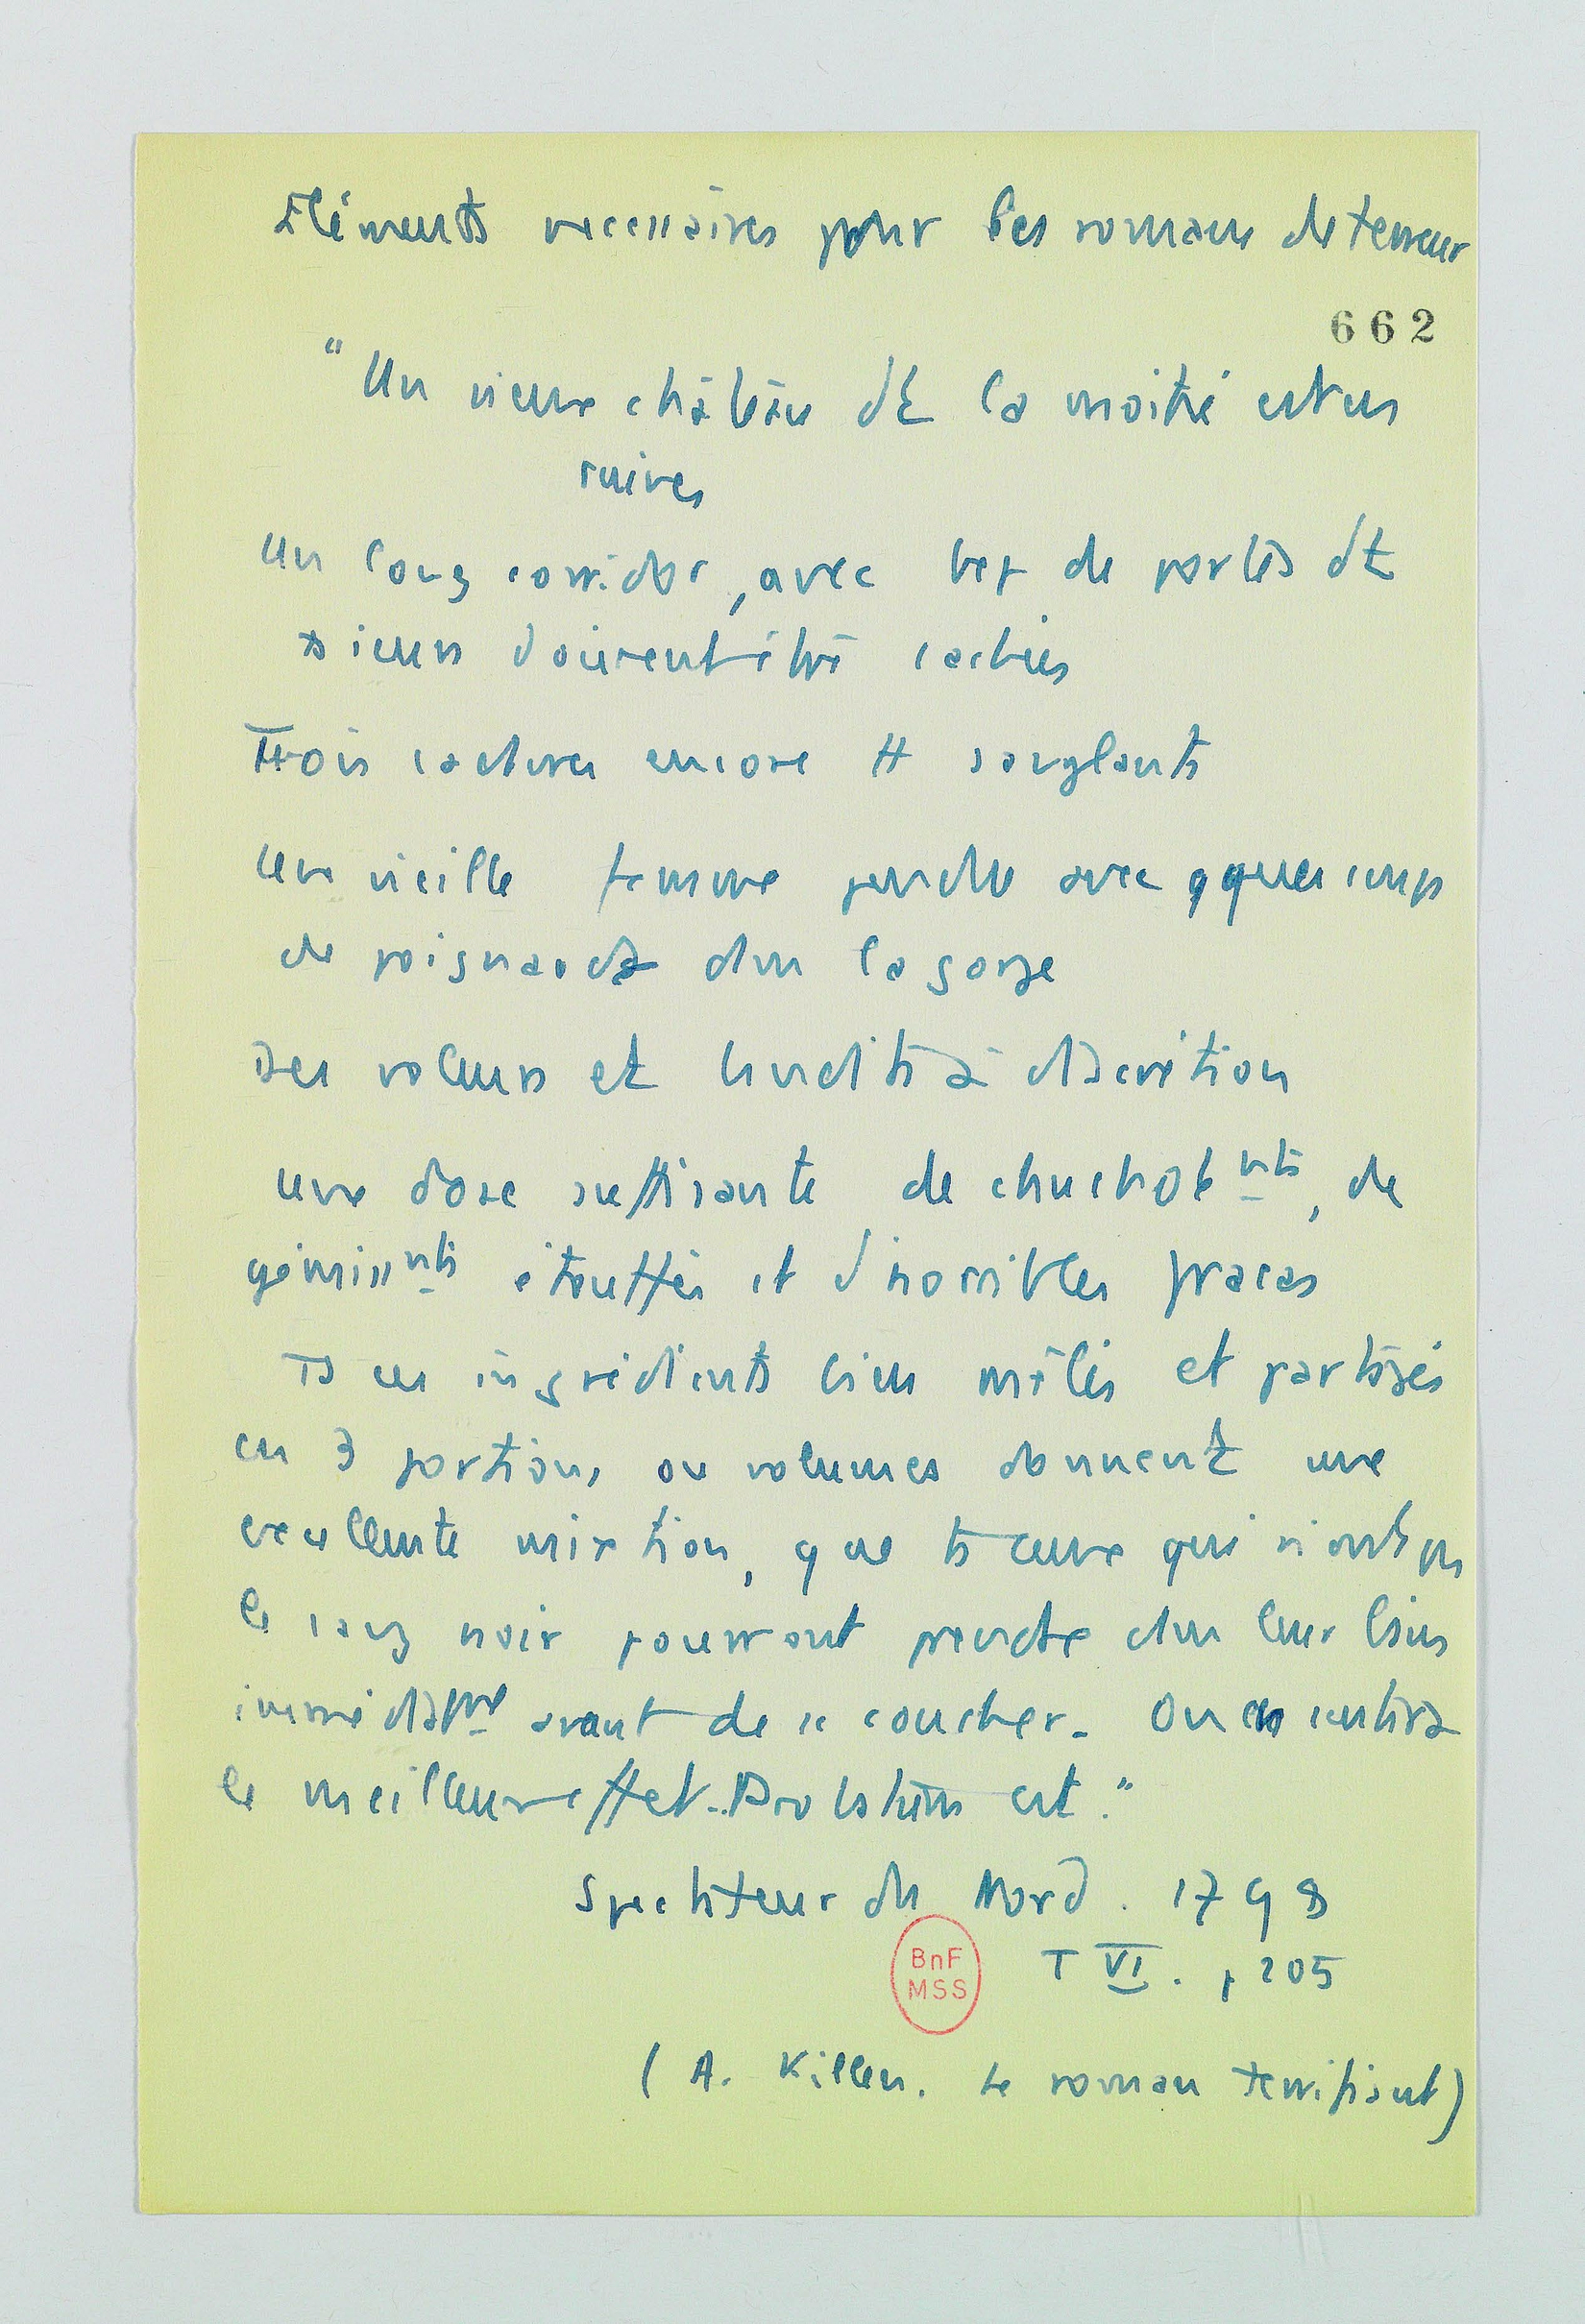 Eléments necessaires pour les romans de terreur
662
"Un vieux château dt la moitié est en
ruines
Un long corridor, avec bcp de portes dt
plsieurs doivent être cachées
Trois cadavres encore tt sanglants
Une vieille femme pendue avec qques coups
de poignards ds la gorge
Des voleurs et bandits à discrétion
Une dose suffisante de chuchotemnts, de
gémissmnts étouffés et d'horribles fracas
Ts ces ingrédients bien mêlés et partagés
en 3 portions ou volumes donnent une
excellente mixtion, que ts ceux qui n'ont pas
le sang noir pourront prendre ds leur bain
immédiatmt avant de se coucher. On en sentira
le meilleur effet. Probatum est."
Spectateur du Nord. 1798
T VI. p 205
BnF
MSS
(A. Killen. Le roman terrifiant)